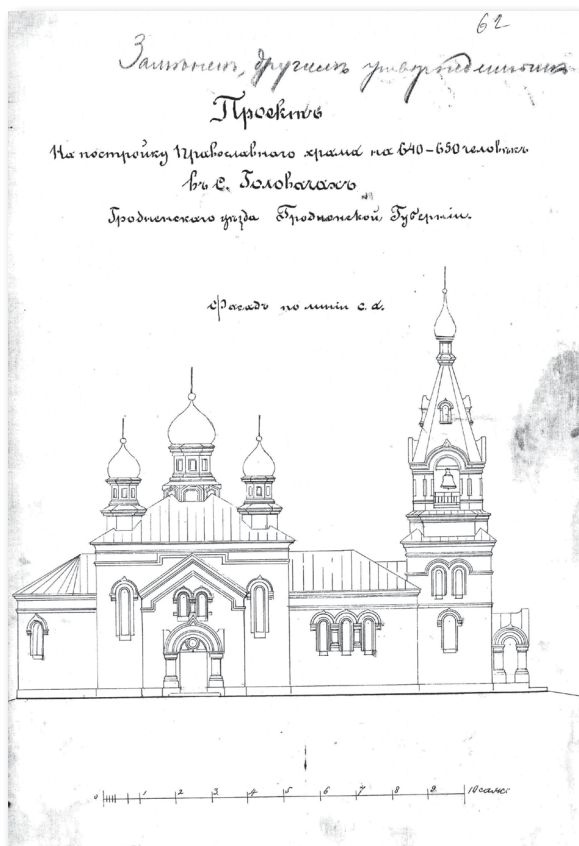 62
Замѣненъ другимъ утвержденнымъ
Проектъ
На постройку Православнаго храма на 640-650 человѣкъ
въ с. Головачахъ
Гродненскаго уѣзда Гродненской Губерніи.
Фасадъ по линіи c. d.
0 1 2 3 4 5 6 7 8 9 10 саж